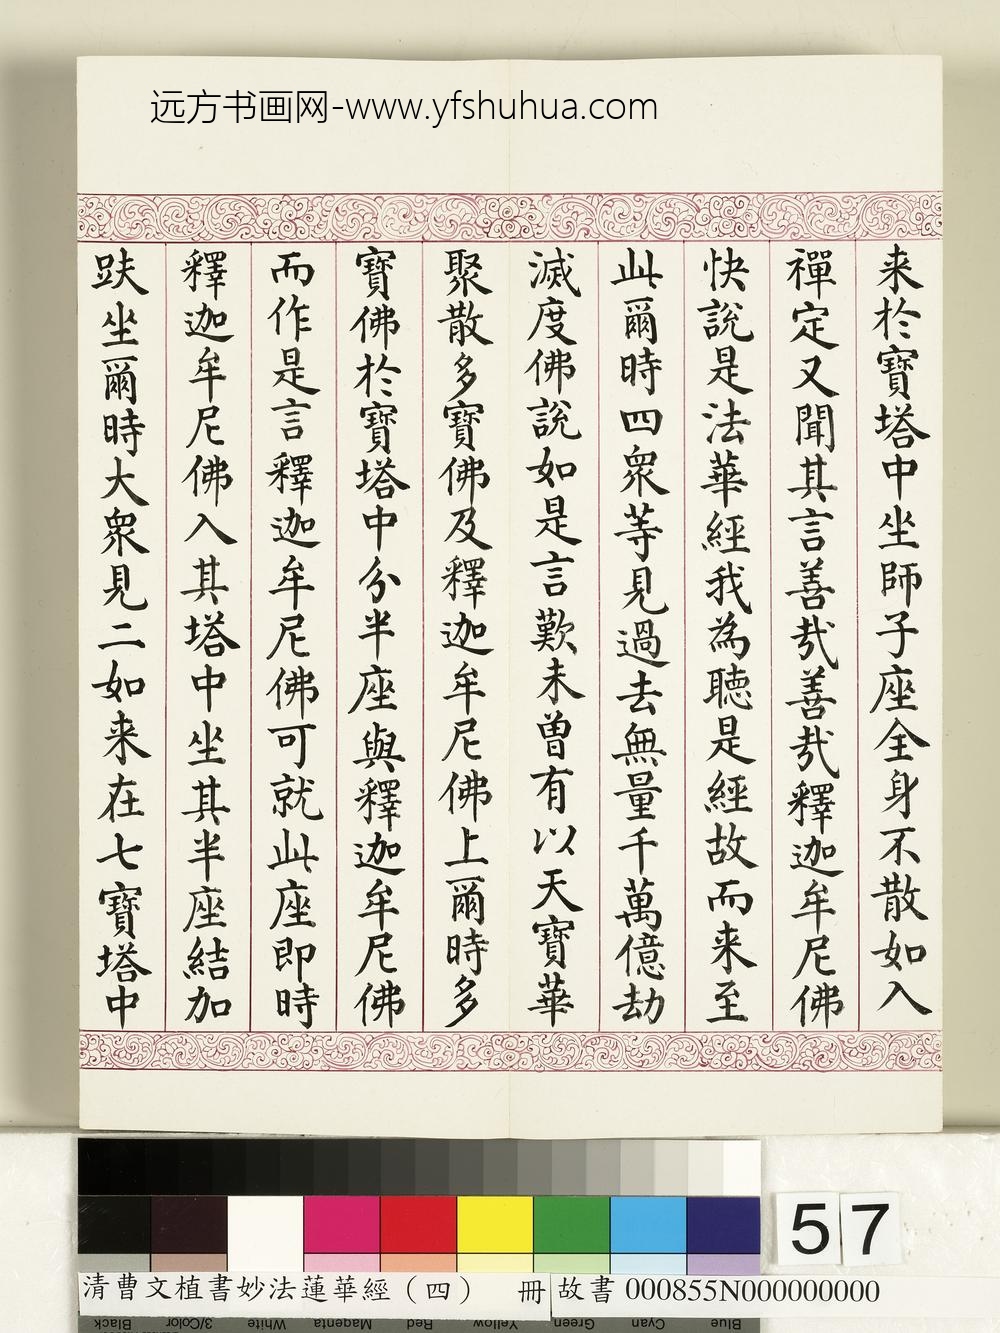 远方书画网-www.yfshuhua.com
来於寶塔中坐師子座全身不散如入
禪定又聞其言善哉善哉釋迦牟尼佛
快說是法華經我為聽是經故而来至
此爾時四衆等見過去無量千萬億劫
滅度佛說如是言歎未曾有以天寶華
聚散多寶佛及釋迦牟尼佛上爾時多
寶佛於寶塔中分半座與釋迦牟尼佛
而作是言釋迦牟尼佛可就此座即時
釋迦牟尼佛入其塔中坐其半座結加
趺坐爾時大衆見二如来在七寶塔中
57
清曹文植書妙法蓮華經（四） 冊 故書 000855N000000000
Black 3/Color White Magenta Red Yellow Green Cyan Blue